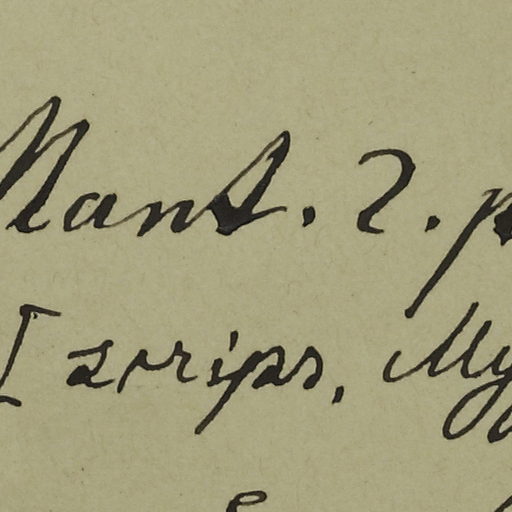 Mant. 2. p
[scrips, My